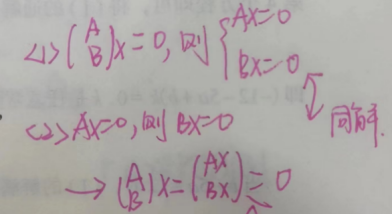 <1> (A B) x = 0, 则 { Ax=0
Bx=0
<2> Ax=0, 则 Bx=0 同解.
→ (A B) x = (Ax Bx) = 0